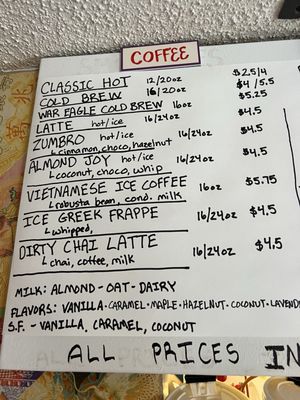 COFFEE
CLASSIC HOT 12/20oz $2.5/4
COLD BREW 16/20oz $4/5.5
WAR EAGLE COLD BREW 16oz $5.25
LATTE hot/ice 16/24oz $4.5
ZUMBRO hot/ice 16/24oz $4.5
↳cinnamon, choco, hazelnut
ALMOND JOY hot/ice 16/24oz $4.5
↳coconut, choco, whip
VIETNAMESE ICE COFFEE 16oz $5.75
↳robusta bean, cond. milk
ICE GREEK FRAPPE 16/24oz $4.5
↳whipped,
DIRTY CHAI LATTE 16/24oz $4.5
↳chai, coffee, milk
MILK: ALMOND-OAT-DAIRY
FLAVORS: VANILLA·CARAMEL·MAPLE·HAZELNUT·COCONUT·LAVEND
S.F. - VANILLA, CARAMEL, COCONUT
ALL PRICES IN